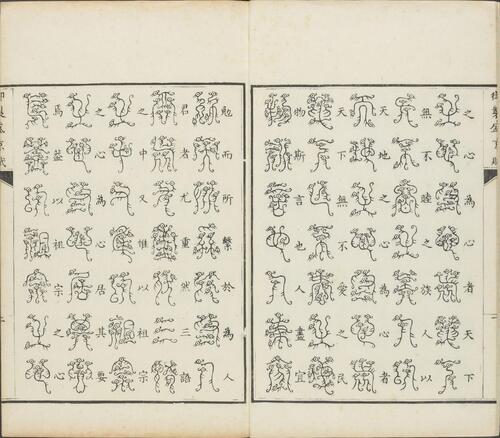 之心為心者天下
無不睦之族人以
天地之心為心者
天下無不愛之民
物斯言也人盡宜
勉而所繫於為人
君者尤重然三語
之中又惟以祖宗
之心為心居其要
焉盖以祖宗之心